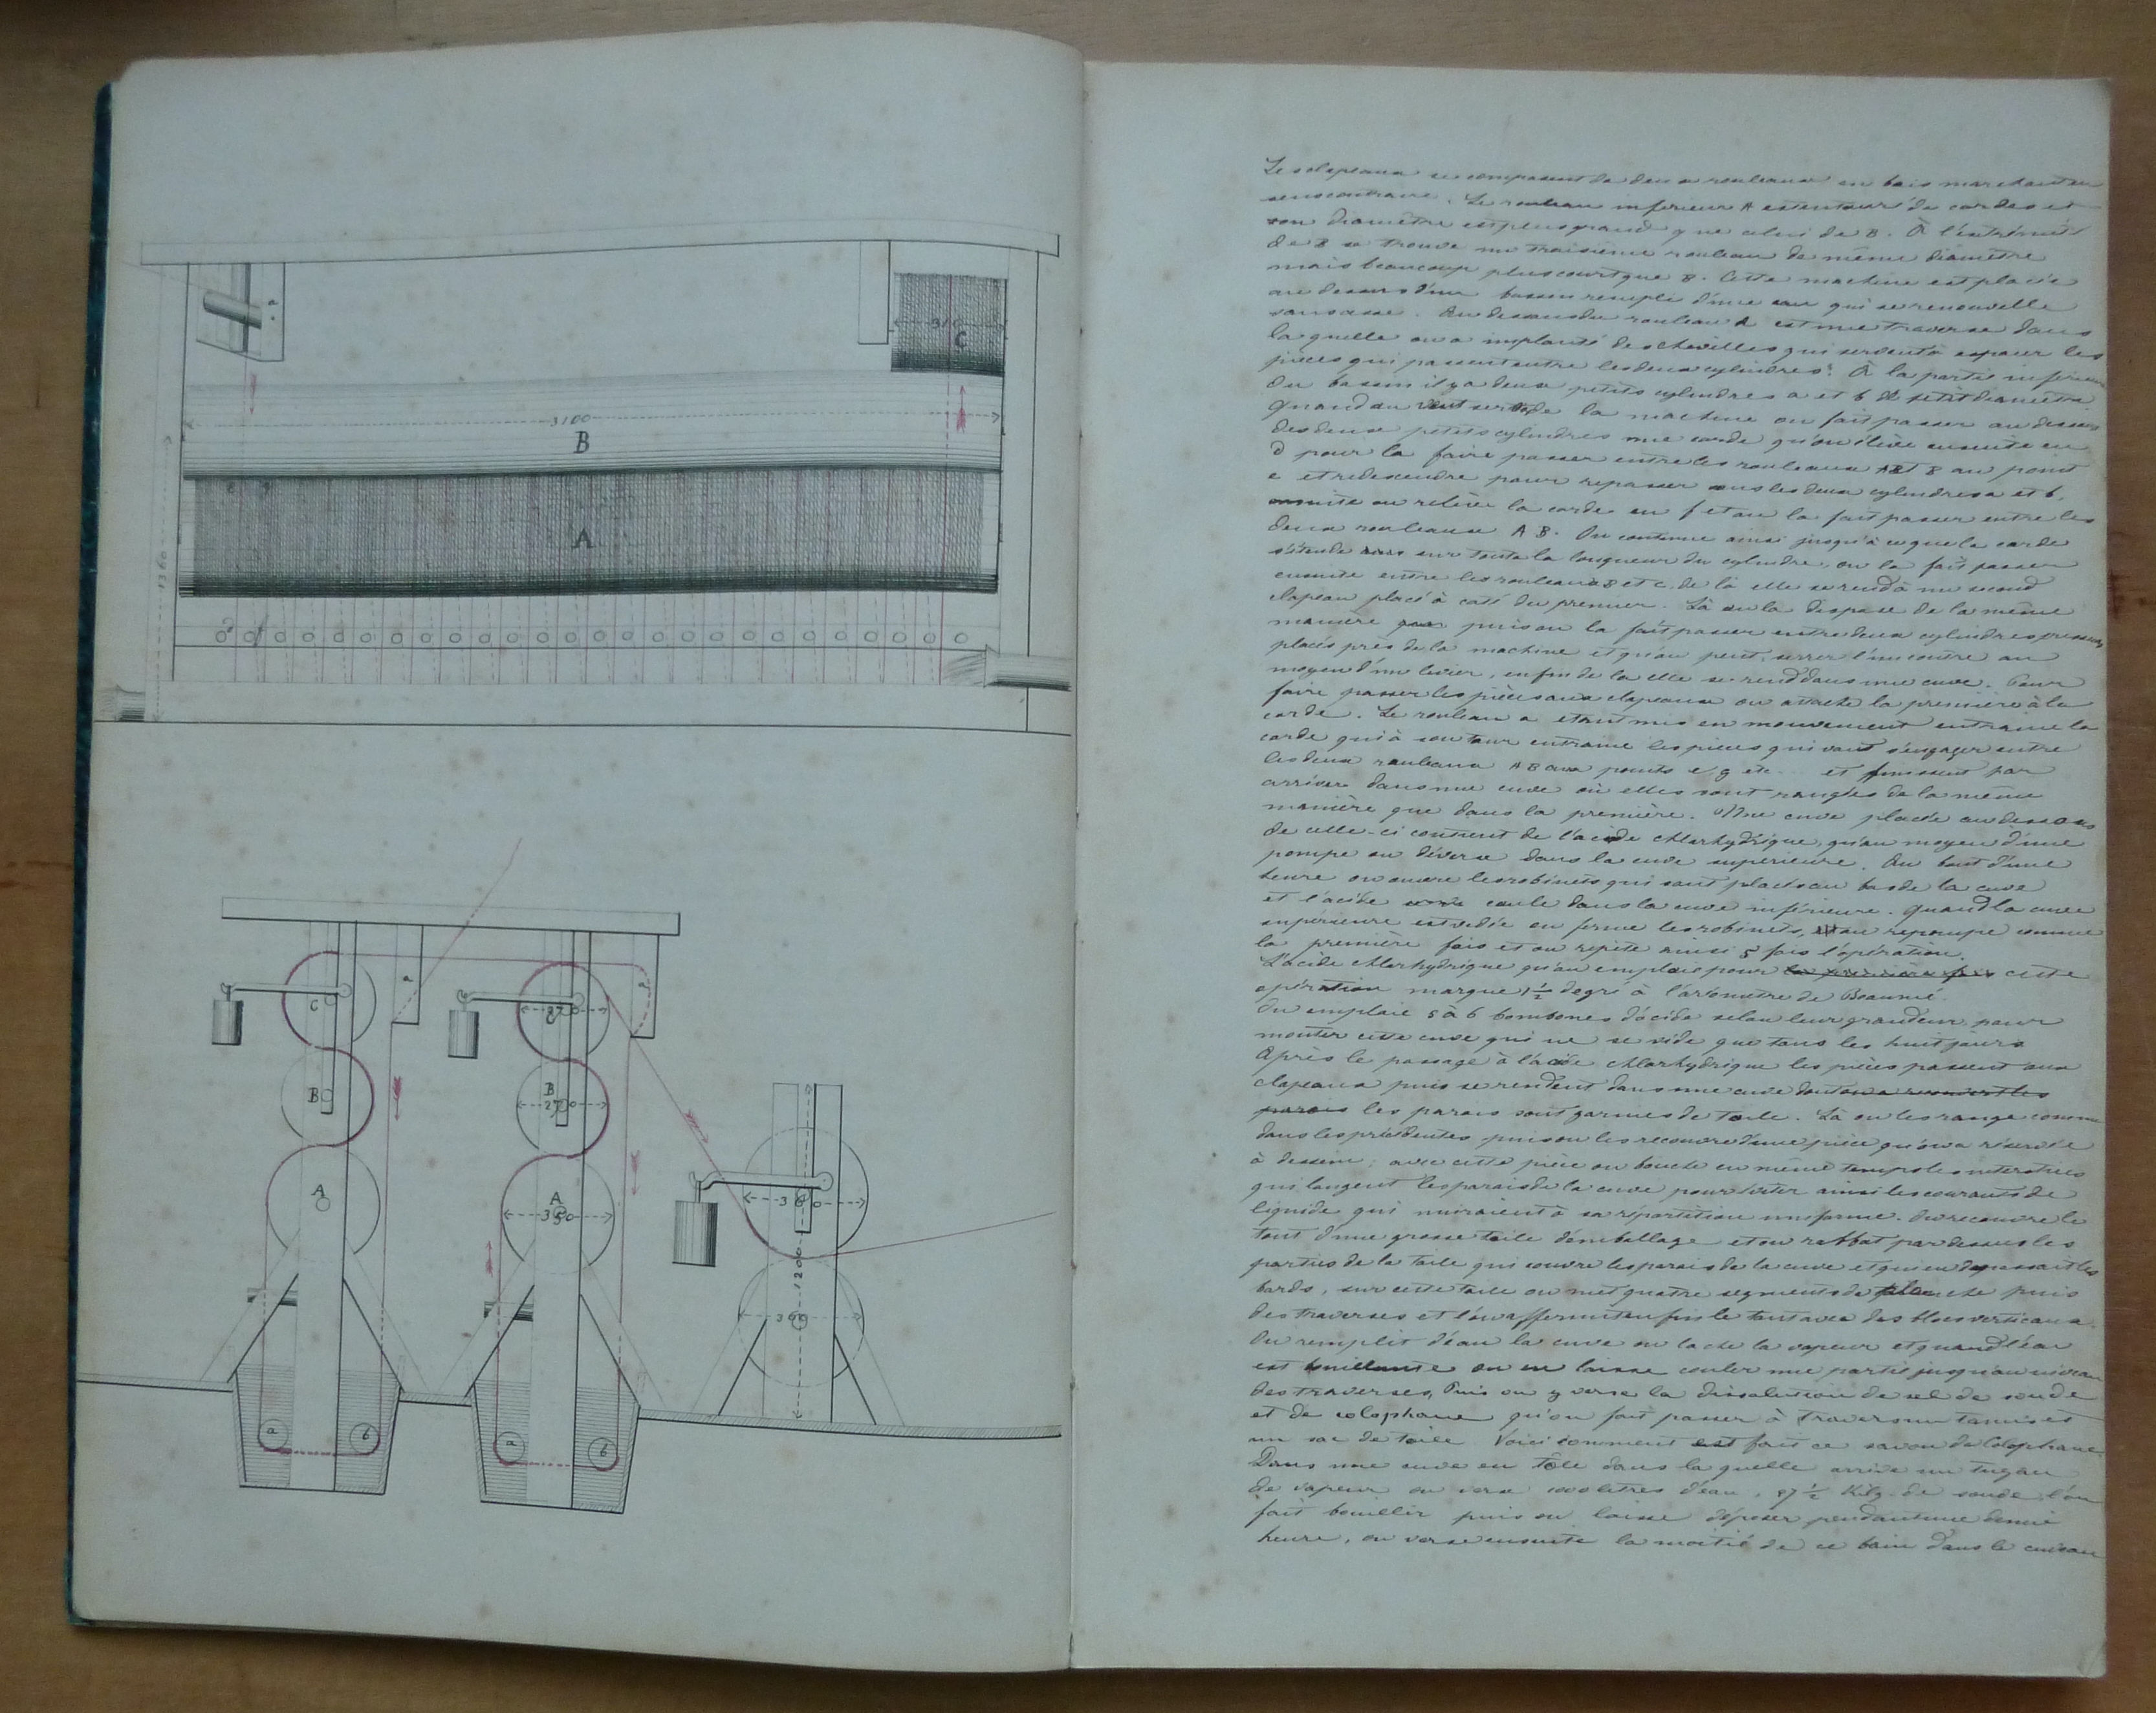 a
310
C
3100
B
A
1360
e g
d f
a
d
C
C
270
B
B
270
A
A
350
360
1200
360
a
b
a
b
Les clapeaux se composent de deux rouleaux en bois marchant en
sens contraire. Le rouleau inferieur A est entouré de cordes et
son diamètre est plus grand que celui de B. À l'extrémité
de B se trouve un troisième rouleau de même diamètre
mais beaucoup plus court que B. Cette machine est placée
au dessus d'un bassin rempli d'une eau qui se renouvelle
sans cesse. Au dessous du rouleau A est une traverse dans
laquelle on a implanté des chevilles qui servent à espacer les
pièces qui passent entre les deux cylindres. À la partie inférieure
du bassin il y a deux petits cylindres a et b de petit diamètre.
Quand on veut se servir de la machine on fait passer au dessous
des deux petits cylindres une corde qu'on élève ensuite en
d pour la faire passer entre les rouleaux A et B au point
e et redescendre pour repasser sous les deux cylindres a et b,
ensuite on relève la corde en f et on la fait passer entre les
deux rouleaux A B. On continue ainsi jusqu'à ce que la corde
s'étende sur toute la longueur du cylindre, on la fait passer
ensuite entre les rouleaux B et C. de là elle se rend à un second
clapeau placé à coté du premier. Là on la dispose de la même
manière puis on la fait passer entre deux cylindres presseurs
placés près de la machine et qu'on peut serrer l'un contre au
moyen d'un levier, enfin de la elle se rend dans une cuve. Pour
faire passer les pièces aux clapeaux on attache la première à la
corde. Le rouleau a etant mis en mouvement entraine la
corde qui à son tour entraine les pièces qui vont s'engager entre
les deux rouleaux A B aux points e g etc... et finissent par
arriver dans une cuve où elles sont rangées de la même
manière que dans la première. Une cuve placée au dessous
de celle-ci contient de l'acide chlorhydrique, qu'au moyen d'une
pompe on déverse dans la cuve supérieure. Au bout d'une
heure on ouvre les robinets qui sont placés au bas de la cuve
et l'acide coule dans la cuve inférieure. Quand la cuve
supérieure est vidée on ferme les robinets, et on repompe comme
la première fois et on répète ainsi 5 fois l'opération.
L'acide chlorhydrique qu'on emploie pour la première fois cette
opération marque 1 1/2 degré à l'aréomètre de Beaumé.
On emploie 5 à 6 bombones d'acide selon leur grandeur pour
monter cette cuve qui ne se vide que tous les huit jours
Après le passage à l'acide chlorhydrique les pièces passent aux
clapeaux puis se rendent dans une cuve dont on a recouvert les
parois les parois sont garnies de toile. Là on les range comme
dans les précédentes puis on les recouvre d'une pièce qu'on a réservée
à dessein; avec cette pièce on bouche en même temps les interstices
qui longent les parois de la cuve pour éviter ainsi les courants de
liquide qui nuiraient à sa répartition uniforme. On recouvre le
tout d'une grosse toile d'emballage et on rabbat par dessus les
parties de la toile qui couvre les parois de la cuve et qui en dépassait les
bords, sur cette toile on met quatre segments de planche puis
des traverses et l'on affermit enfin le tout avec des blocs verticaux.
On remplit d'eau la cuve on lache la vapeur et quand l'eau
est bouillante on en laisse couler une partie jusqu'au niveau
des traverses, Puis on y verse la dissolution de sel de soude
et de colophane qu'on fait passer à travers un tamis et
un sac de toile. Voici comment est fait ce savon de Colophane
Dans une cuve en tôle dans laquelle arrive un tuyau
de vapeur on verse 1000 litres d'eau, 87 1/2 Kilg. de soude l'on
fait bouillir puis on laisse déposer pendant une demie
heure, on verse ensuite la moitié de ce bain dans le cuveau